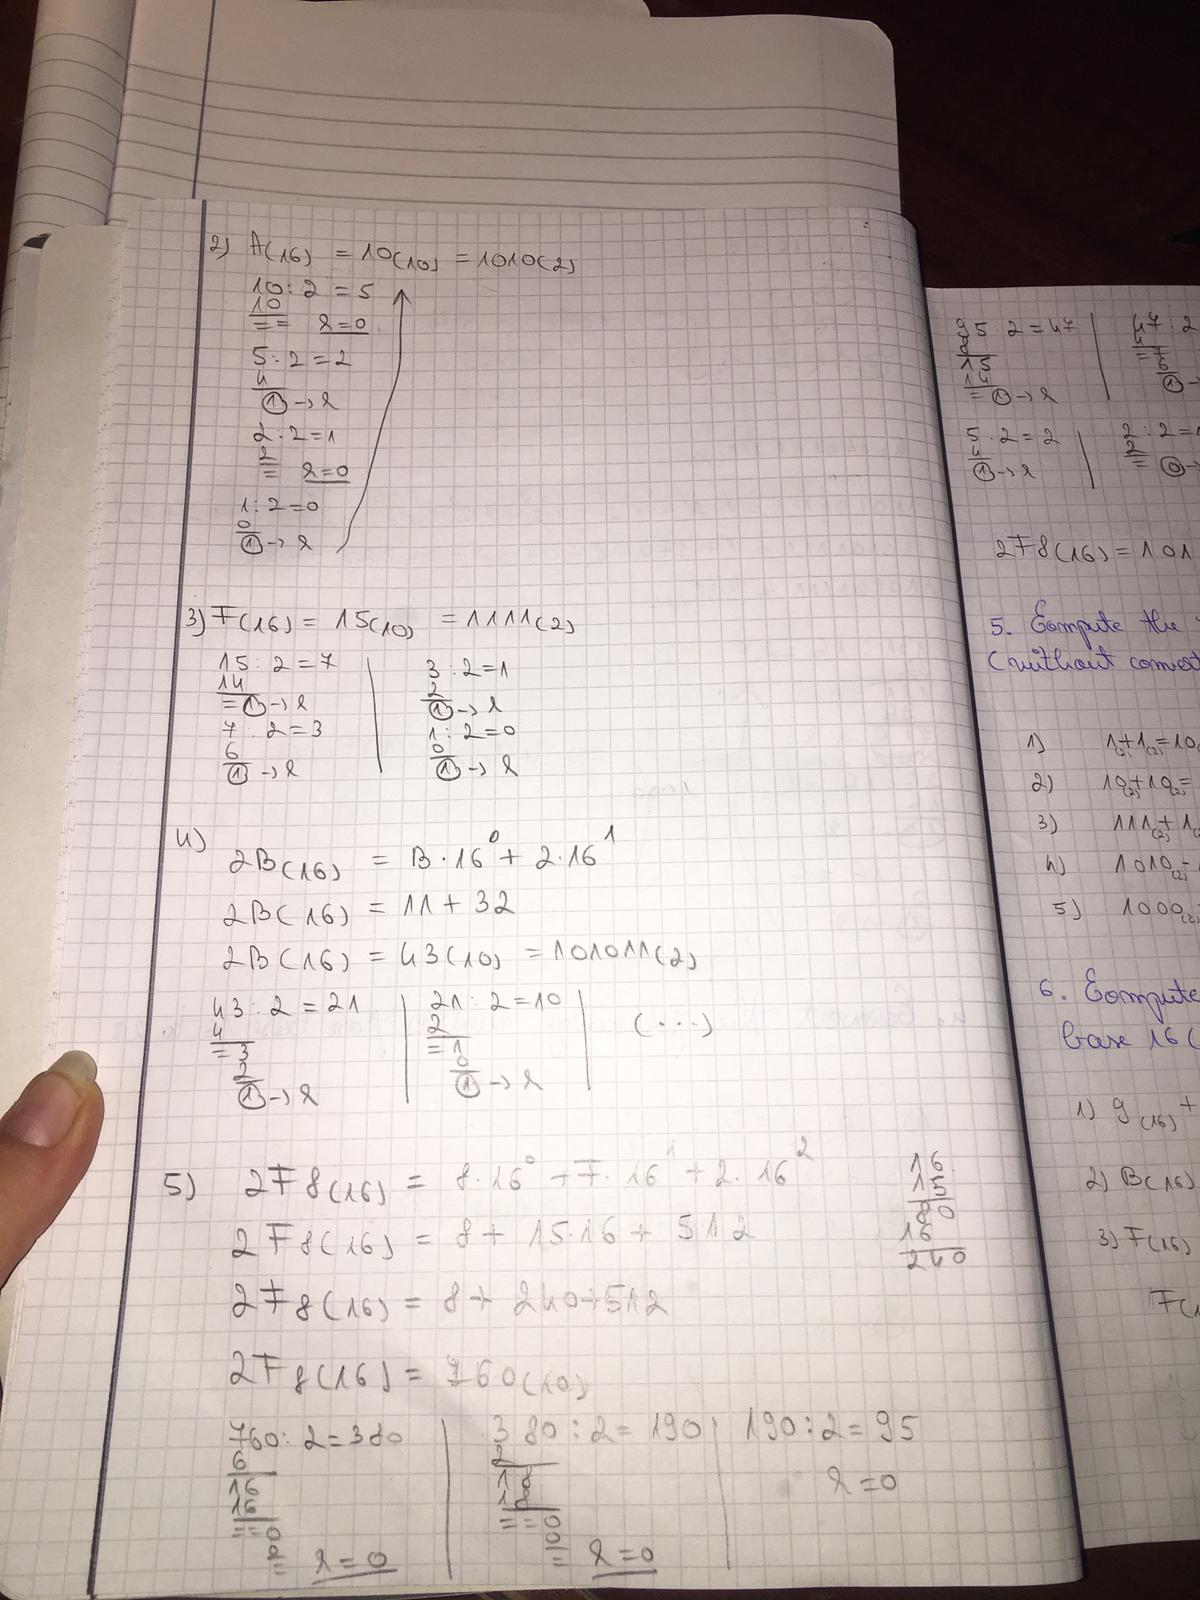 2) A(16) = 10(10) = 1010(2)
10 : 2 = 5
10
== r=0
5 : 2 = 2
4
1 → r
2 : 2 = 1
2
= r=0
1 : 2 = 0
0
1 → r
3) F(16) = 15(10) = 1111(2)
15 : 2 = 7
14
= 1 → r
7 : 2 = 3
6
1 → r
3 : 2 = 1
2
1 → r
1 : 2 = 0
0
1 → r
4)
2B(16) = B·16⁰ + 2·16¹
2B(16) = 11 + 32
2B(16) = 43(10) = 101011(2)
43 : 2 = 21
4
= 3
2
1 → r
21 : 2 = 10
2
= 1
0
1 → r
(...)
5) 2F8(16) = 8·16⁰ + F·16¹ + 2·16²
2F8(16) = 8 + 15·16 + 512
2F8(16) = 8 + 240 + 512
2F8(16) = 760(10)
16
15
80
16
240
760 : 2 = 380
6
16
16
== 0
0
= r = 0
380 : 2 = 190
2
18
18
== 0
0
= r = 0
190 : 2 = 95
r = 0
95 : 2 = 47
8
15
14
= 1 → r
47 : 2
4
= 7
6
1 →
5 : 2 = 2
4
1 → r
2 : 2 = 1
2
= 0 →
2F8(16) = 101
5. Compute the
(without
1) 1(2) + 1(2) = 10
2) 10(2) + 10(2) =
3) 111(2) +
4) 1010(2)
5) 1000(2)
6. Compute
base 16 (
1) 9(16) +
2) B(16)
3) F(16)
F(1